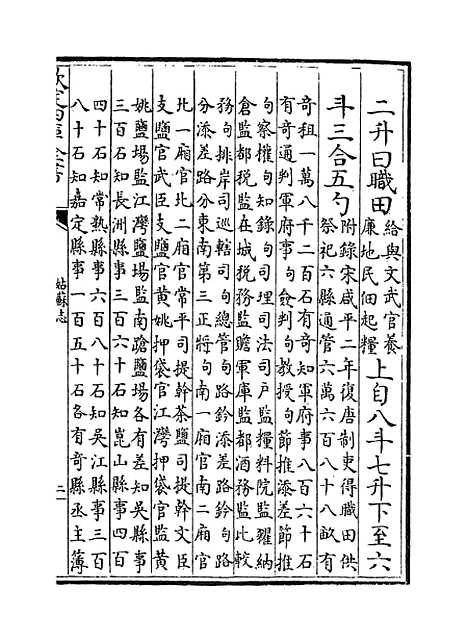 二升曰職田給與文武官養廉地民佃起糧上自八斗七升下至六
斗三合五勺附錄宋咸平二年復唐制吏得職田供祭祀六縣通管六萬六百八十八畝有
奇租一萬八千二百石有奇知軍府事八百六十石
有奇通判軍府事句僉判句教授句節推添差節推
句察權句知錄句司理司法司戶監糧料院監糴納
倉監都税監在城税務監贍軍庫監都酒務監比較
務句排岸司巡轄司句總管句路鈐添差路鈐句路
分添差路分東南第三正將句南一廂官南二廂官
北一廂官北二廂官常平司提幹茶鹽司提幹文臣
支鹽官武臣支鹽官黄姚押袋官江灣押袋官監黄
姚鹽場監江灣鹽場監南蹌鹽場各有差知吳縣事
三百石知長洲縣事三百六十石知崑山縣事四百
四十石知常熟縣事六百八十石知吳江縣事三百
八十石知嘉定縣事一百五十石各有奇縣丞主簿
欽定四庫全書
姑蘇志
二